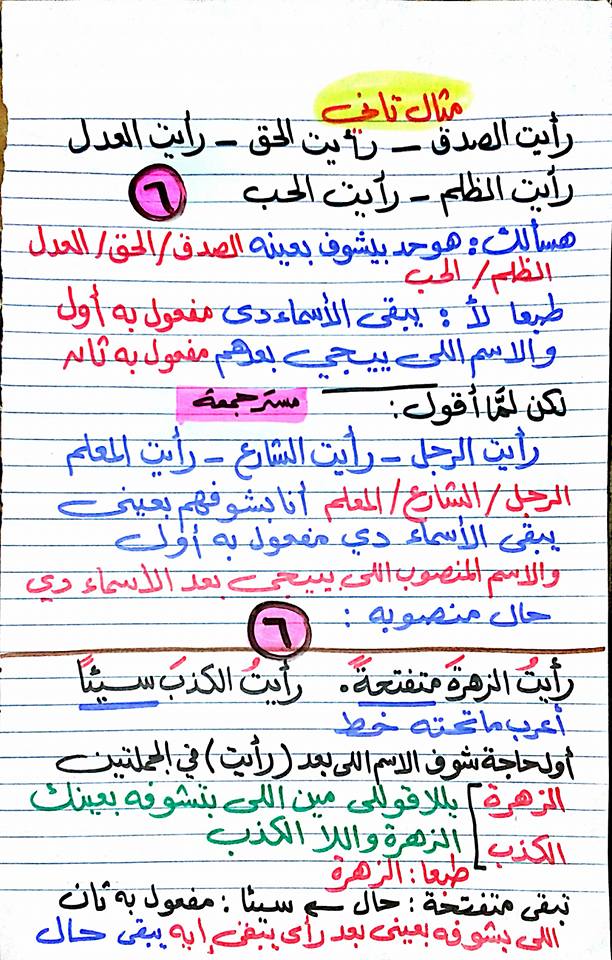 مثال تانى
رأيت الصدق – رأيت الحق – رأيت العدل
رأيت الظلم – رأيت الحب
٦
هسألك: هو حد بيشوف بعينه الصدق/الحق/العدل
الظلم/ الحب
طبعا لأ: يبقى الأسماء دى مفعول به أول
والاسم اللى ييجي بعدهم مفعول به ثان
لكن لمَّا أقول:
مستر جمعة
رأيت الرجل – رأيت الشارع – رأيت المعلم
الرجل / الشارع / المعلم أنا بشوفهم بعينى
يبقى الأسماء دي مفعول به أول
والاسم المنصوب اللى ييجى بعد الأسماء دي
حال منصوبه:
٦
رأيتُ الزهرةَ متفتحةً. رأيتُ الكذبَ سيئاً
أعرب ما تحته خط
أول حاجة شوف الاسم اللى بعد (رأيت) في الجملتين
الزهرة
الكذب
يللا قوللى مين اللى بتشوفه بعينك
الزهرة واللا الكذب
طبعا: الزهرة
تبقى متفتحة: حال ← سيئا: مفعول به ثان
اللى بشوفه بعينى بعد رأى يبقى إيه يبقى حال